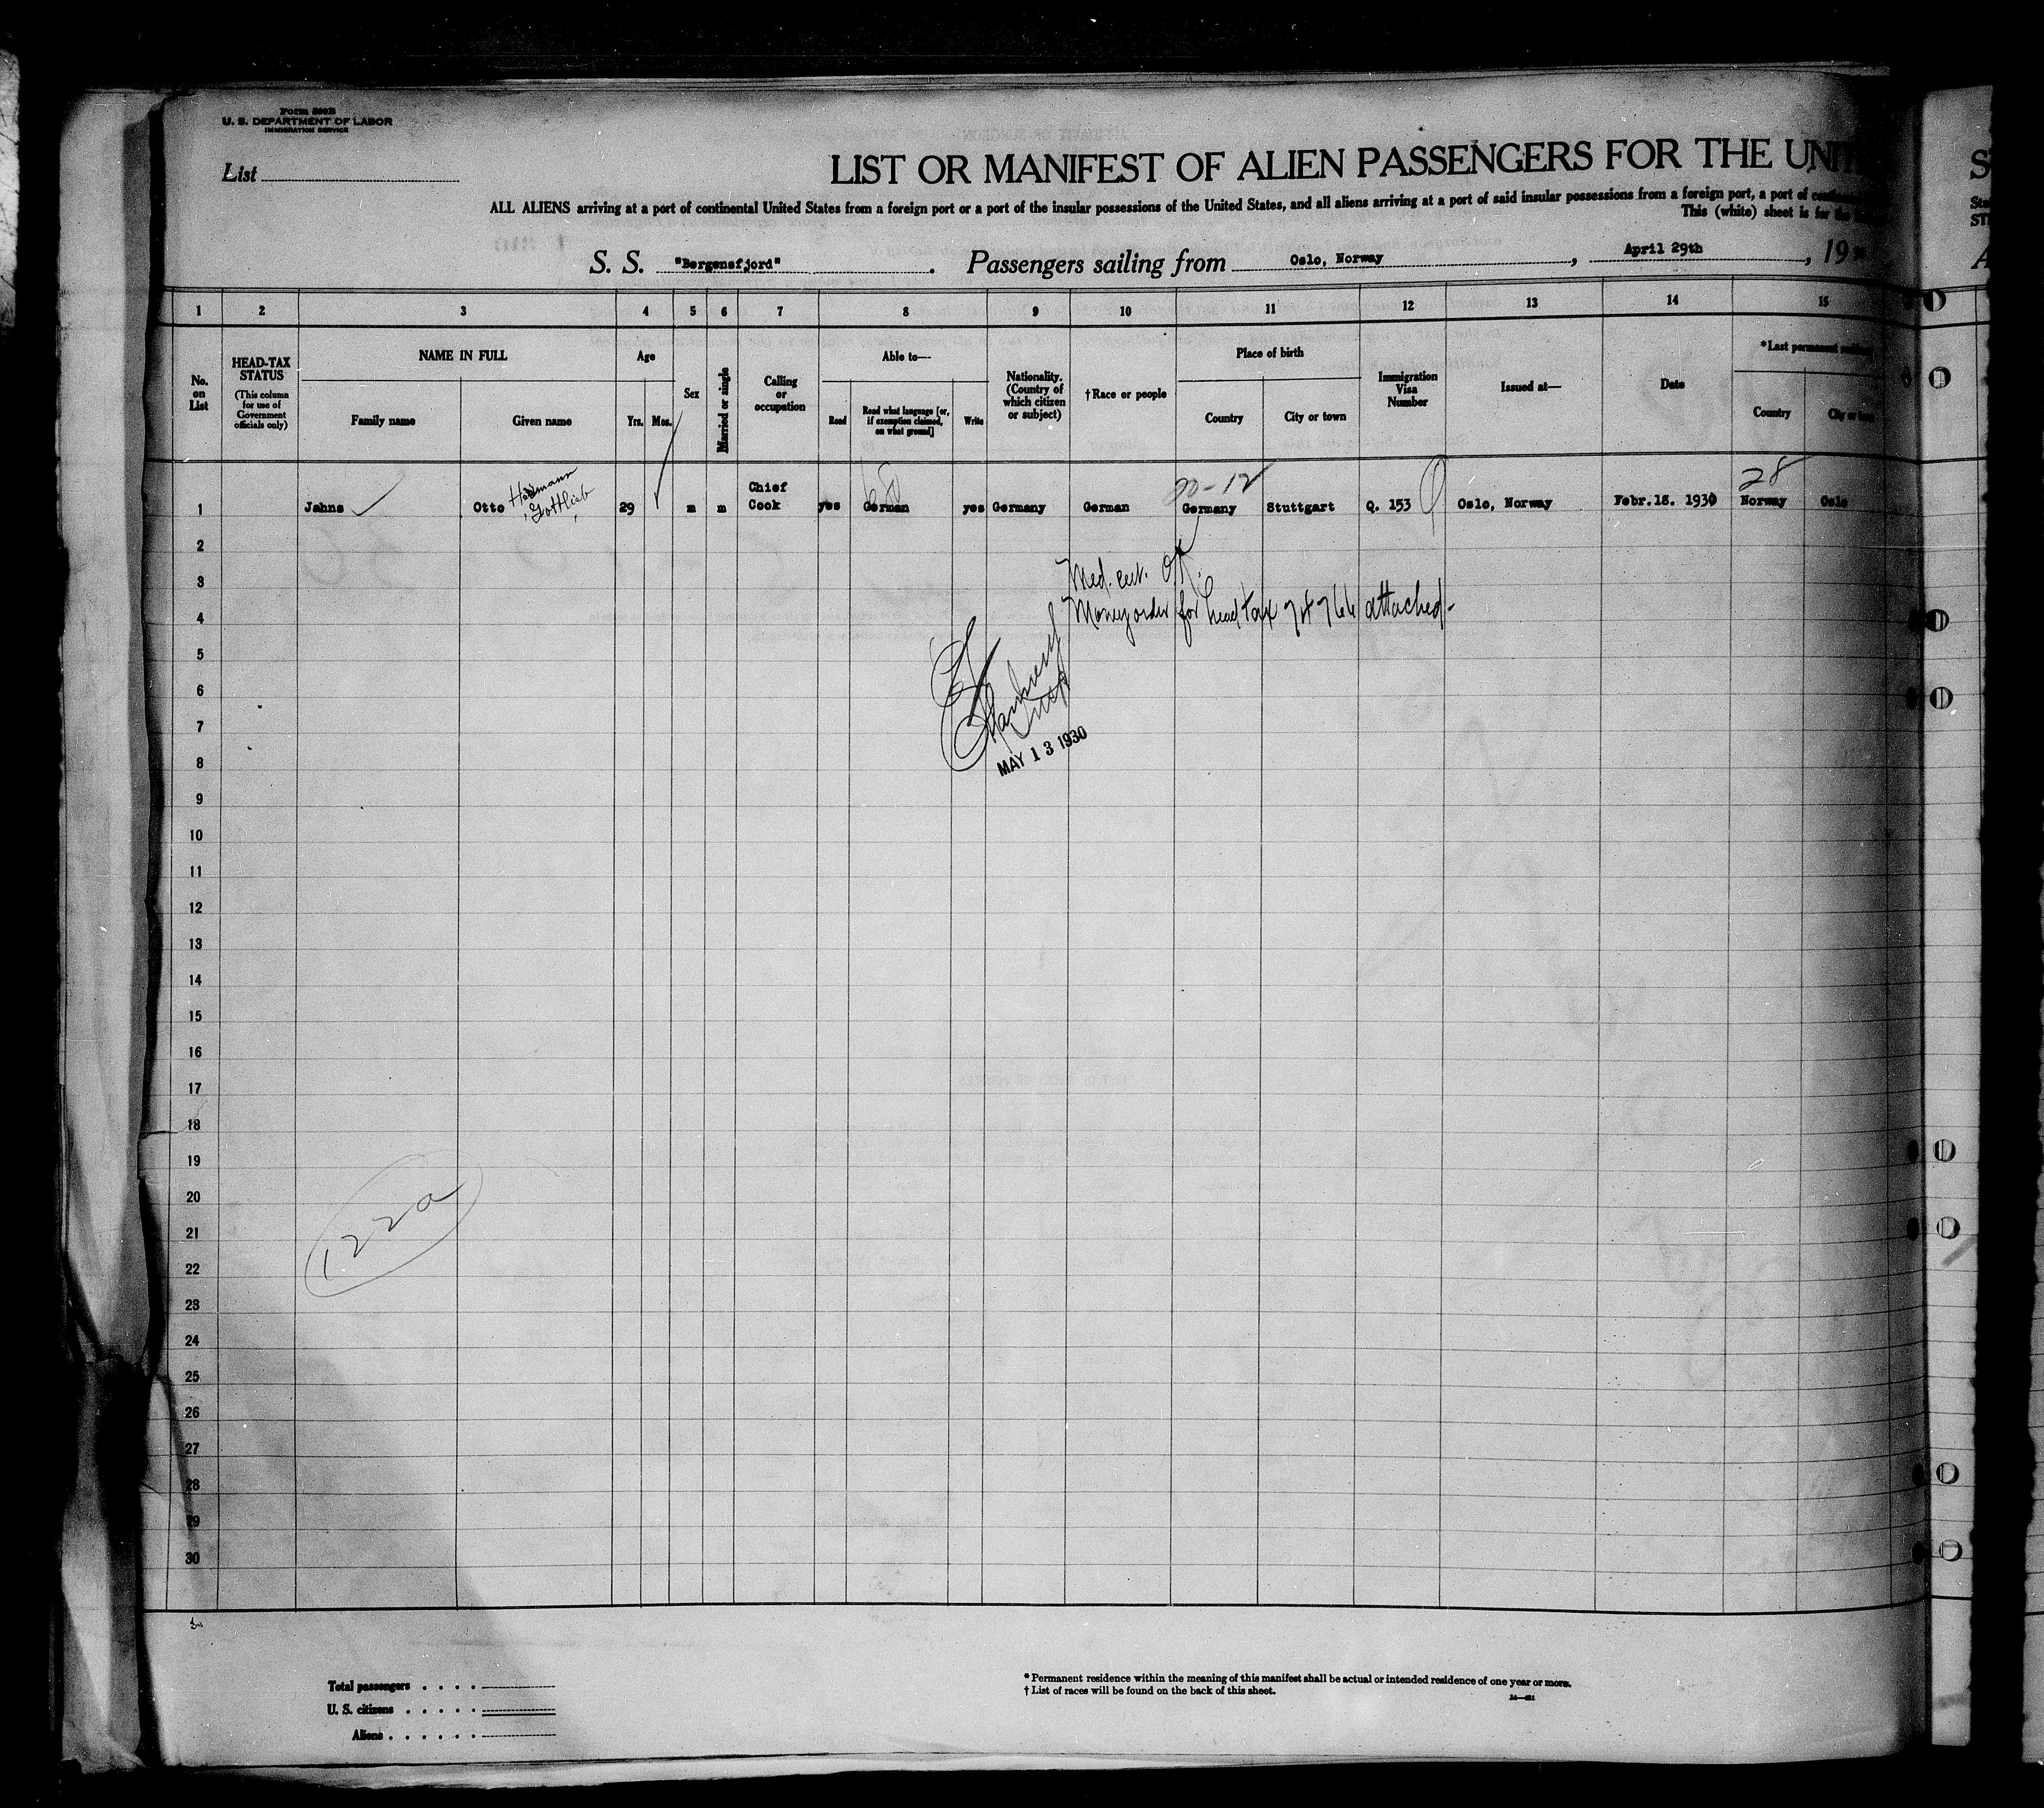 Form 500B
U. S. DEPARTMENT OF LABOR
IMMIGRATION SERVICE
List
LIST OR MANIFEST OF ALIEN PASSENGERS FOR THE UNIT
ALL ALIENS arriving at a port of continental United States from a foreign port or a port of the insular possessions of the United States, and all aliens arriving at a port of said insular possessions from a foreign port, a port of
This (white) sheet is for the
S. S. "Bergensfjord" . Passengers sailing from Oslo, Norway , April 29th , 19
1 2 3 4 5 6 7 8 9 10 11 12 13 14 15
No. on List
HEAD-TAX STATUS
(This column for use of Government officials only)
NAME IN FULL
Family name
Given name
Age
Yrs.
Mos.
Sex
Married or single
Calling or occupation
Able to—
Read
Read what language [or, if exemption claimed, on what ground]
Write
Nationality. (Country of which citizen or subject)
†Race or people
Place of birth
Country
City or town
Immigration Visa Number
Issued at—
Date
*Last permanent
Country
City or town
1 Jahns Otto Hermann Gottlieb 29 m m Chief Cook yes German yes Germany German Germany Stuttgart Q. 153 Oslo, Norway Febr.18. 1930 Norway Oslo
20-12
28
2
3
Med. cert. OK.
4
Money order for head tax 74766 attached.
5
6
7
MAY 13 1930
8
9
10
11
12
13
14
15
16
17
18
19
20
122a
21
22
23
24
25
26
27
28
29
30
Total passengers
U. S. citizens
Aliens
* Permanent residence within the meaning of this manifest shall be actual or intended residence of one year or more.
† List of races will be found on the back of this sheet.